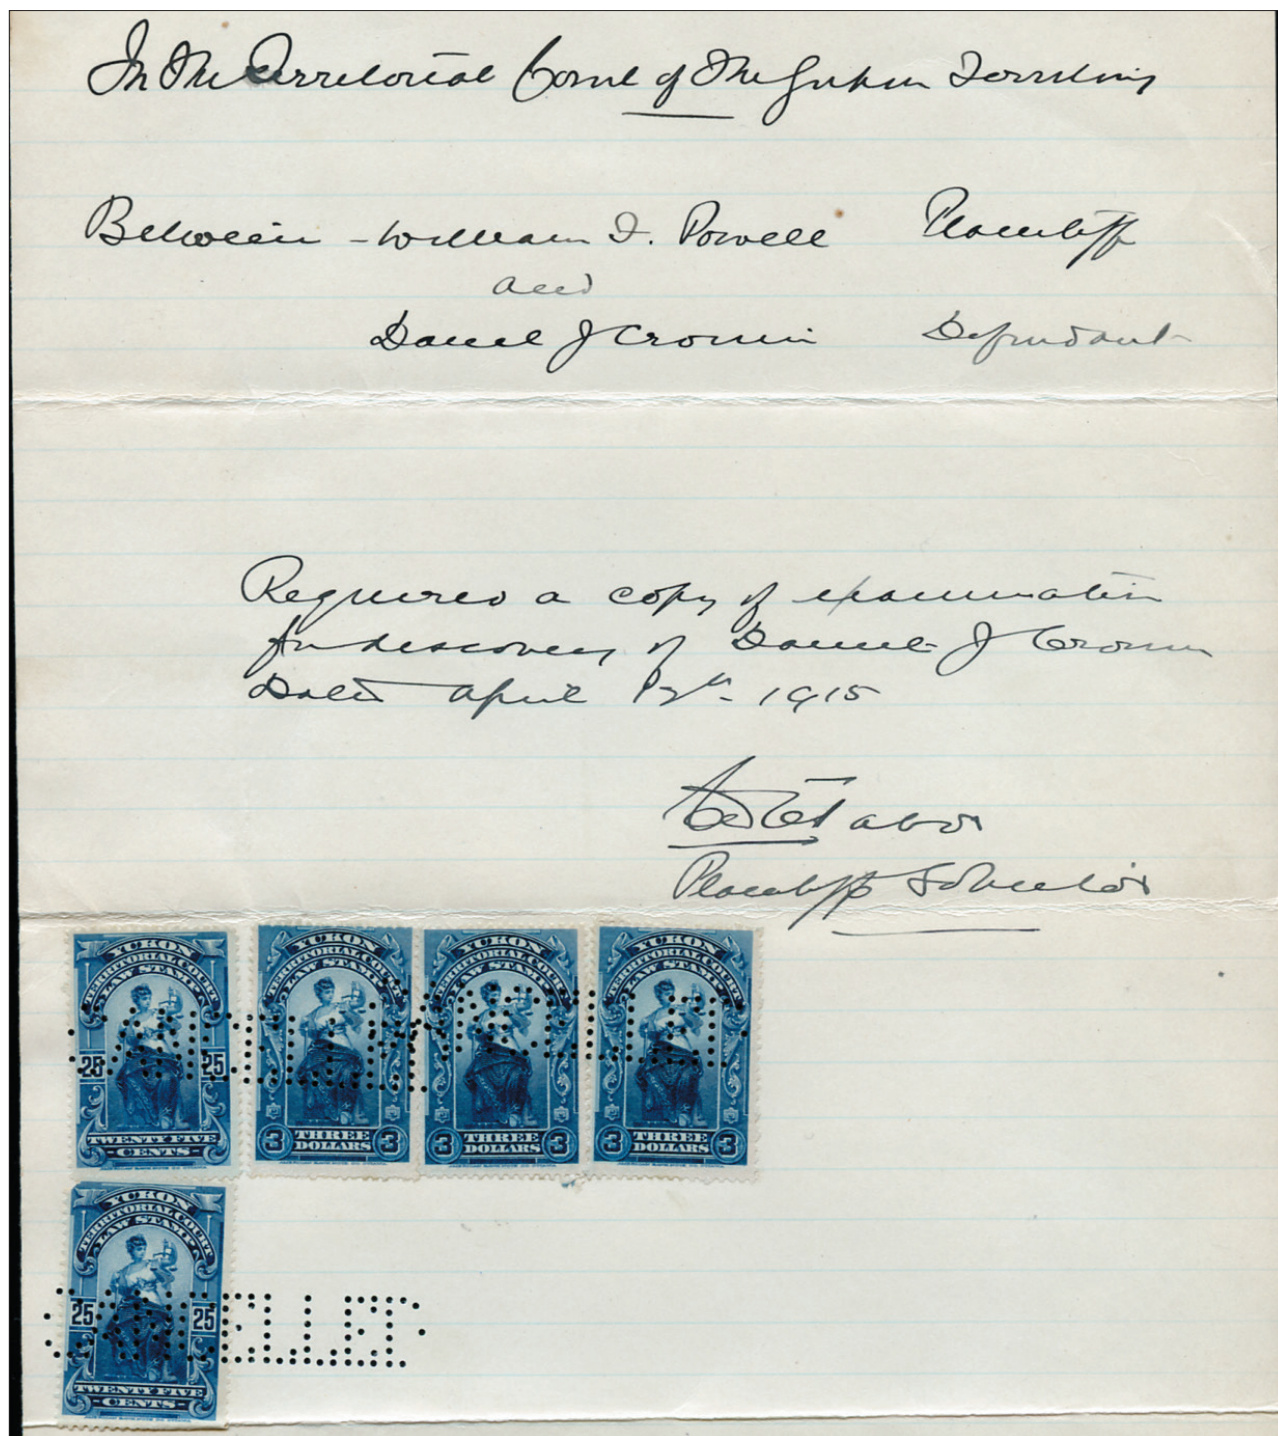 In The Territorial Court of The Yukon Territory
Between - William F. Powell Plaintiff
and
Daniel J Cronin Defendant
Required a copy of examination
for discovery of Daniel J Cronin
Dated April th 1915
Tabor
Plaintiff Solicitor
YUKON
TERRITORIAL COURT
LAW STAMP
25 25
TWENTY FIVE
CENTS
YUKON
TERRITORIAL COURT
LAW STAMP
3 THREE DOLLARS 3
YUKON
TERRITORIAL COURT
LAW STAMP
3 THREE DOLLARS 3
YUKON
TERRITORIAL COURT
LAW STAMP
3 THREE DOLLARS 3
CANCELLED
YUKON
TERRITORIAL COURT
LAW STAMP
25 25
TWENTY FIVE
CENTS
CANCELLED